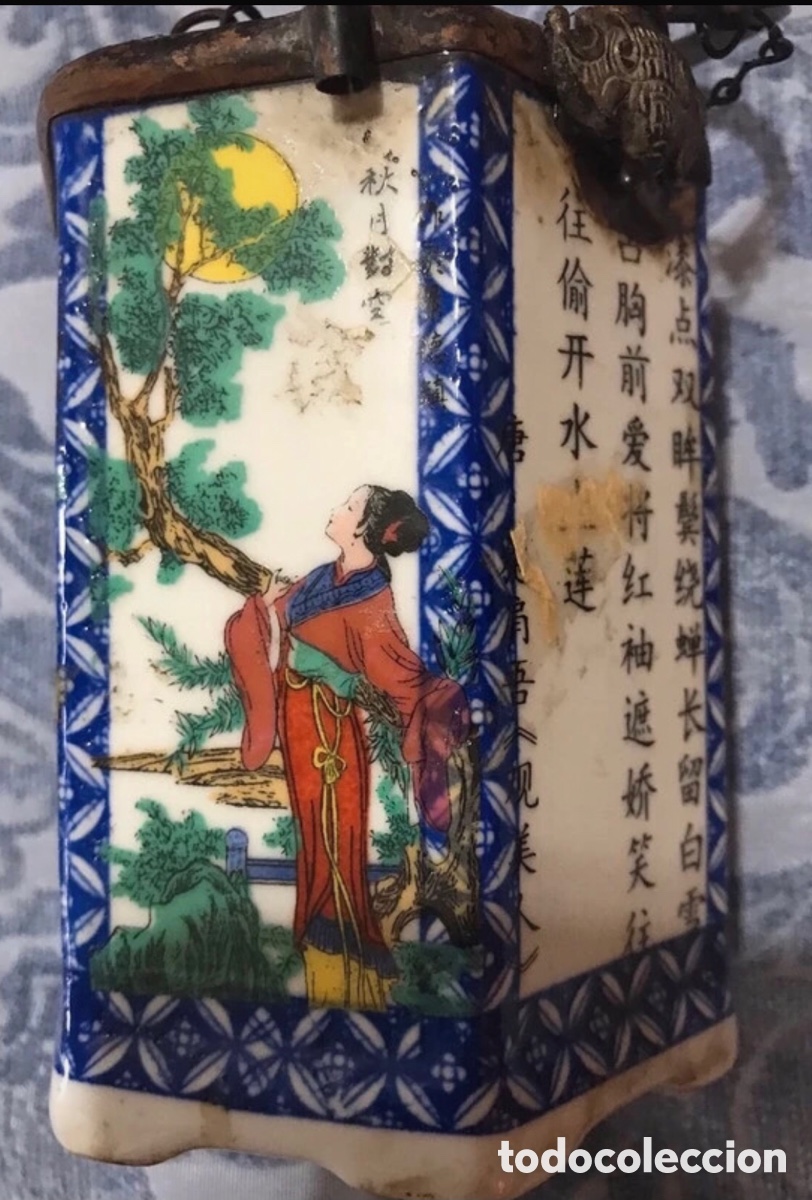 秋月對空
漆点双眸鬓绕蝉长留白雪
占胸前爱将红袖遮娇笑往
往偷开水 莲
唐 肩吾《观美人》
todocoleccion